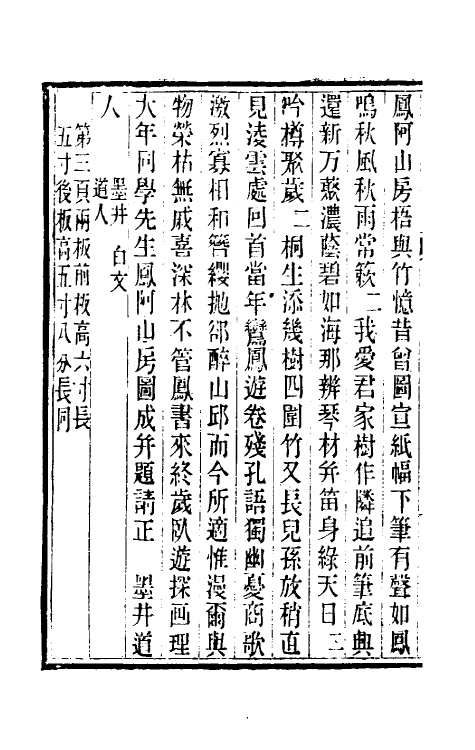 鳳阿山房梧與竹憶昔曾圖宣紙幅下筆有聲如鳳
鳴秋風秋雨常簌二我愛君家樹作隣追前筆底與
還新万藂濃蔭碧如海那辨琴材并笛身綠天日二
吟樽聚歲二桐生添幾樹四圍竹又長兒孫放稍直
見淩雲處回首當年鸞鳳遊卷殘孔語獨幽憂商歌
激烈寡相和簪纓拋郤醉山邱而今所適惟漫爾與
物榮枯無戚喜深林不管鳳書來終歲臥遊探画理
大年同學先生鳳阿山房圖成并題請正　墨井道
人　墨井道人　白文
第三頁兩板前板高六寸長
五寸後板高五寸八分長同